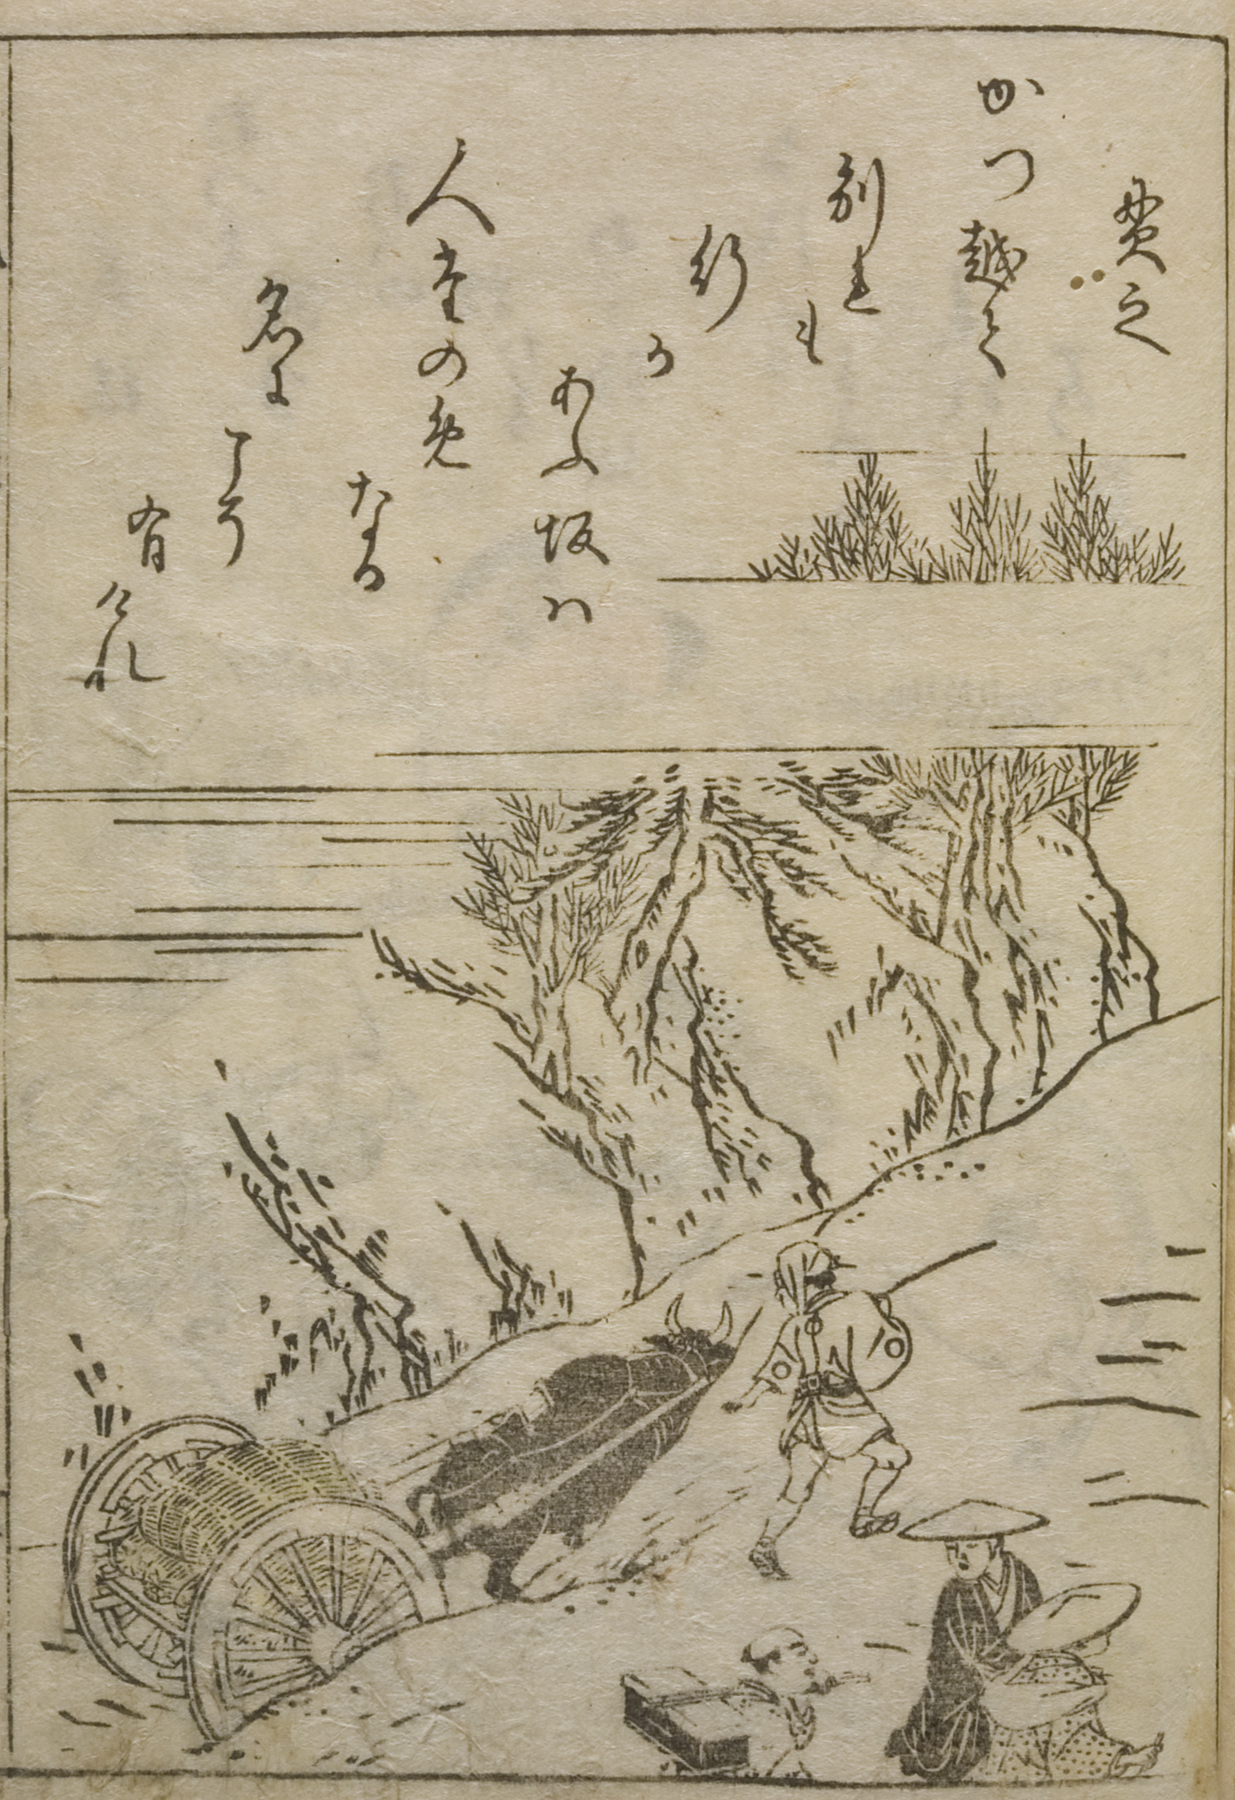 貫之
かつ越て
別れ
も
行
か
あふ坂ハ
人堂のめ
なる
名に
こそ
有
けれ